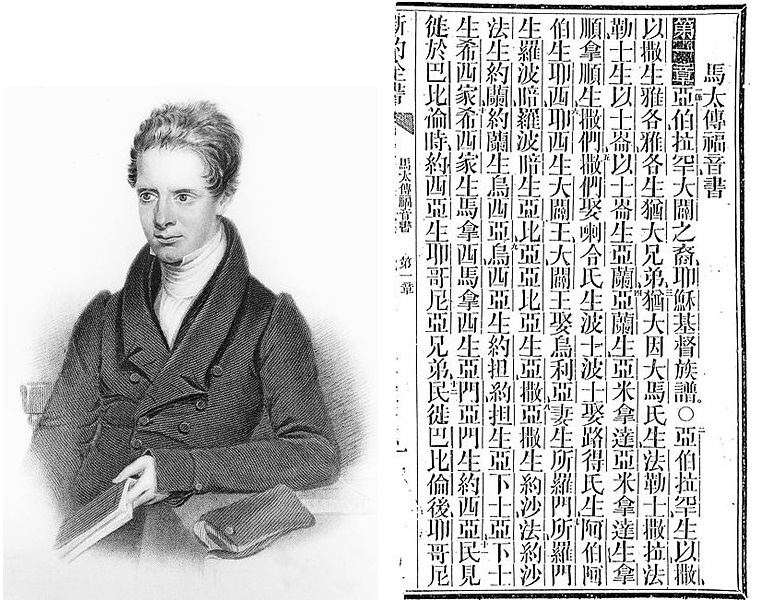 馬太傳福音書
第一章亞伯拉罕大闢之裔耶穌基督族譜。○亞伯拉罕生以撒
以撒生雅各雅各生猶大兄弟猶大因大馬氏生法勒士撒拉法
勒士生以士崙以士崙生亞蘭亞蘭生亞米拿達亞米拿達生拿
順拿順生撒們撒們娶喇合氏生波士波士娶路得氏生阿伯阿
伯生耶西耶西生大闢王大闢王娶烏利亞妻生所羅門所羅門
生羅波暗羅波暗生亞比亞亞比亞生亞撒亞撒生約沙法約沙
法生約蘭約蘭生烏西亞烏西亞生約担約担生亞下士亞下士
生希西家希西家生馬拿西馬拿西生亞門亞門生約西亞民見
徙於巴比倫時約西亞生耶哥尼亞兄弟民徙巴比倫後耶哥尼
新約全書 馬太傳福音書 第一章